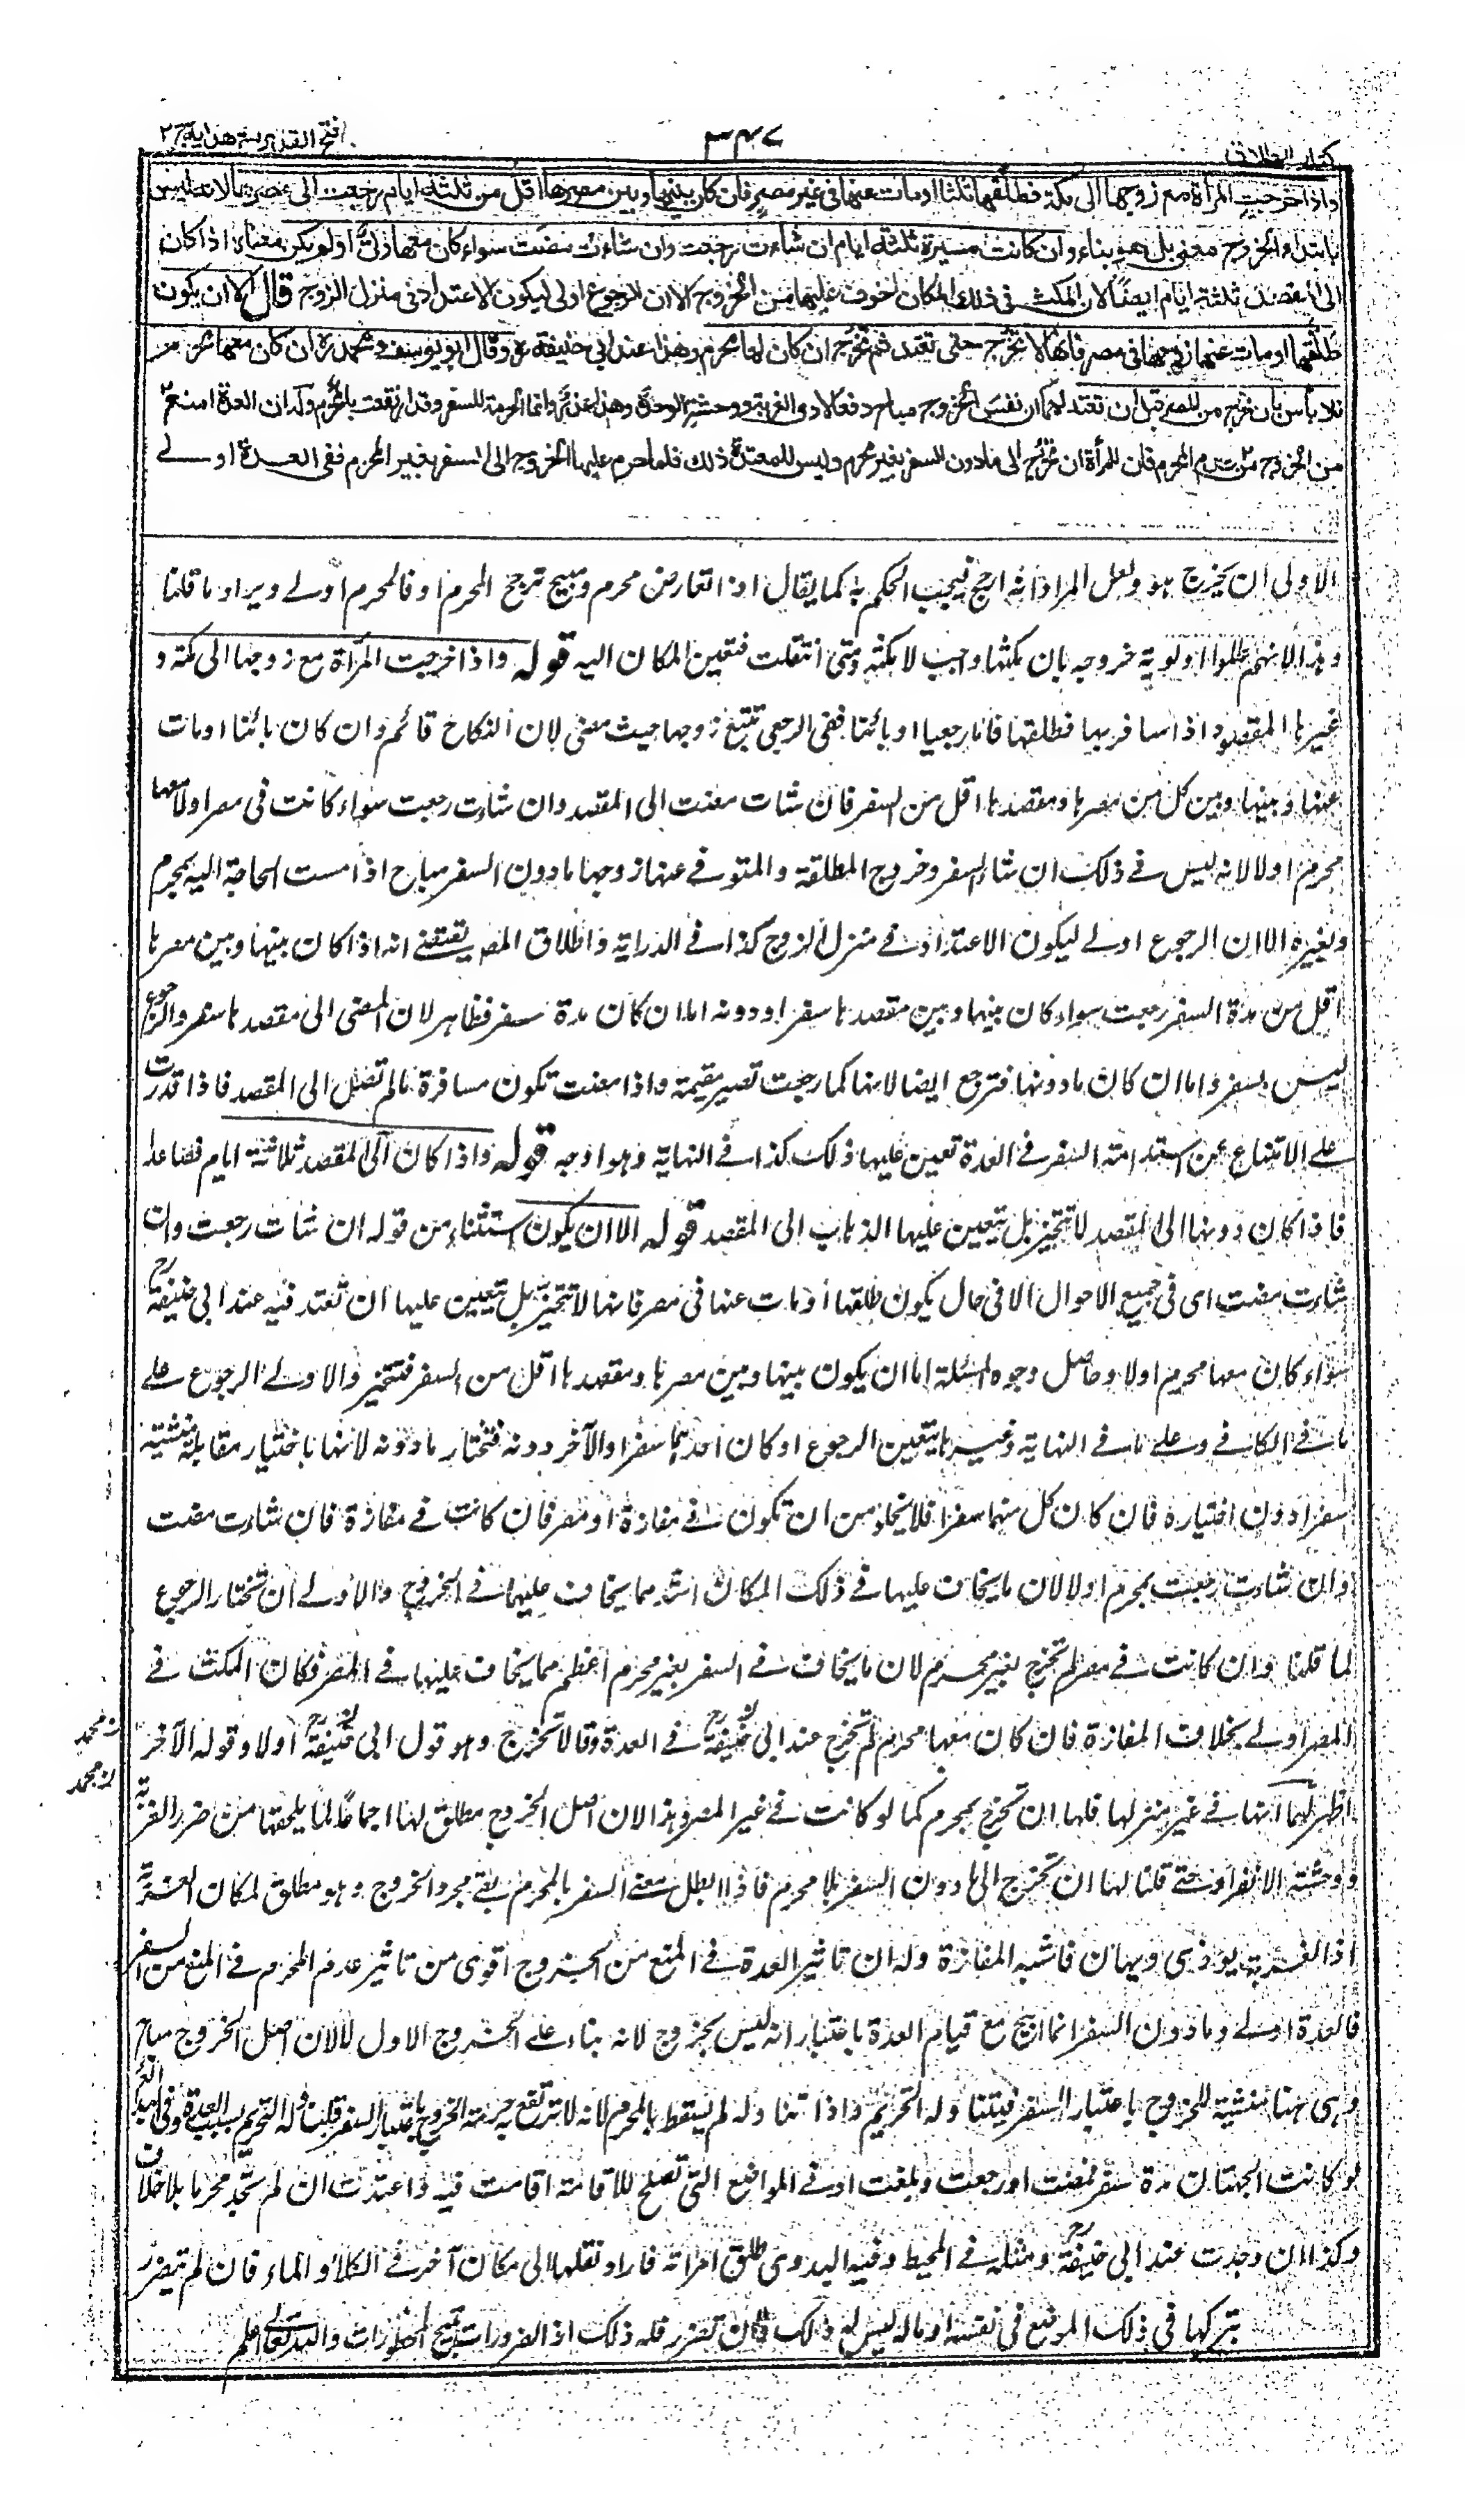 كتاب الطلاق
٣٤٧
فتح القدير مع هداية ج ٢
واذا خرجت المرأة مع زوجها الى مكة فطلقها ثلثا او مات عنها في غير مصر فان كان بينها وبين مصرها اقل من ثلثة ايام رجعت الى مصرها لانه ليس
بابتداء الخروج معنى بل هو بناء وان كانت مسيرة ثلثة ايام ان شاءت رجعت وان شاءت مضت سواء كان معها ولي او لم يكن معناه اذا كان
الى المقصد ثلثة ايام ايضا لان المكث في ذلك المكان اخوف عليها من الخروج الا ان الرجوع اولى ليكون الاعتداد في منزل الزوج قال الا ان يكون
طلقها او مات عنها زوجها في مصر فانها لا تخرج حتى تعتد ثم تخرج ان كان لها محرم وهذا عند ابي حنيفة وقال ابو يوسف ومحمد ان كان معها محرم
فلا بأس بان تخرج من المصر قبل ان تعتد لهما ان نفس الخروج مباح دفعا لاذى الغربة ووحشة الوحدة وهذا عذر وانما الحرمة للسفر وقد ارتفعت بالمحرم وله ان العدة امنع
من الخروج من عدم المحرم فان للمرأة ان تخرج الى ما دون السفر بغير محرم وليس للمعتدة ذلك فلما حرم عليها الخروج الى السفر بغير المحرم ففي العدة اولى
الاولى ان يخرج هو ولعل المراد انه ارجح فيجب الحكم به كما يقال اذا تعارض محرم ومبيح ترجح المحرم او فالمحرم اولى ويراد ما قلنا
وهذا لانهم عللوا اولوية خروجه بان مكثها واجب لا مكثه ومتى انتقلت فتعين المكان اليه قوله واذا خرجت المرأة مع زوجها الى مكة و
غيرها المقصود اذا سافر بها فطلقها فاما رجعيا او بائنا ففي الرجعي تتبع زوجها حيث مضى لان النكاح قائم وان كان بائنا او مات
عنها وبينها وبين كل من مصرها ومقصدها اقل من السفر فان شات مضت الى المقصد وان شاءت رجعت سواء كانت في مصر او لا معها
محرم او لا لانه ليس في ذلك ان شاء السفر وخروج المطلقة والمتوفى عنها زوجها ما دون السفر مباح اذا مست الحاجة اليه بمحرم
وبغيره الا ان الرجوع اولى ليكون الاعتداد في منزل الزوج كذا في الدراية واطلاق المص يقتضي انه اذا كان بينها وبين مصرها
اقل من مدة السفر رجعت سواء كان بينها وبين مقصدها سفر او دونه اما ان كان مدة سفر فظاهر لان المضي الى مقصدها سفر والرجوع
ليس بسفر واما ان كان ما دونها فترجع ايضا لانها كما رجعت تصير مقيمة واذا مضت تكون مسافرة ما لم تصل الى المقصد فاذا قدرت
على الامتناع عن استدامة السفر في العدة تعين عليها ذلك كذا في النهاية وهو اوجه قوله واذا كان الى المقصد ثلاثة ايام فصاعدا
فاذا كان دونها الى المقصد لا تتخير بل يتعين عليها الذهاب الى المقصد قوله الا ان يكون استثناء من قوله ان شات رجعت وان
شاءت مضت اى في جميع الاحوال الا في حال يكون طلقها او مات عنها في مصر فانها لا تتخير بل يتعين عليها ان تعتد فيه عند ابي حنيفة رح
سواء كان معها محرم او لا وحاصل وجوه المسئلة اما ان يكون بينها وبين مصرها ومقصدها اقل من السفر فتتخير والاولى الرجوع على
ما في الكافي وعلى ما في النهاية وغيرها يتعين الرجوع او كان احدهما سفرا والآخر دونه فتختار ما دونه لانها باختيار مقابله منشئة
سفرا دون اختياره فان كان كل منهما سفرا فلا يخلو من ان تكون في مفازة او مصر فان كانت في مفازة فان شاءت مضت
وان شاءت رجعت بمحرم او لا لان ما يخاف عليها في ذلك المكان اشد مما يخاف عليها في الخروج والاولى ان تختار الرجوع
لما قلنا وان كانت في مصر لم تخرج بغير محرم لان ما يخاف في السفر بغير محرم اعظم مما يخاف عليها في المصر فكان المكث في
المصر اولى بخلاف المفازة فان كان معها محرم لم تخرج عند ابي حنيفة رح في العدة وقالا تخرج وهو قول ابي حنيفة رح اولا وقوله الآخر
اظهر لهما انها في غير منزلها فلها ان تخرج بمحرم كما لو كانت في غير المصر وهذا لان اصل الخروج مطلق لها اجماعا لما يلحقها من ضرر الغربة
ووحشة الانفراد حتى قلنا لها ان تخرج الى ما دون السفر بلا محرم فاذا بطل معنى السفر بالمحرم بقي مجرد الخروج وهو مطلق لمكان الغربة
اذ الغريب يوذى ويهان فاشبه المفازة وله ان تاثير العدة في المنع من الخروج اقوى من تاثير عدم المحرم في المنع من السفر
فالعدة اولى وما دون السفر انما ابيح مع قيام العدة باعتبار انه ليس بخروج لانه بناء على الخروج الاول لا لان اصل الخروج مباح
وهي هنا منشئة للخروج باعتبار السفر فيتناوله التحريم واذا تناوله لم يسقط بالمحرم لانه لا ترتفع به حرمة الخروج باعتبار السفر قلنا وله التحريم بسبب العدة وفي
لو كانت الجهتان مدة سفر فمضت او رجعت وبلغت ادنى المواضع التي تصلح للاقامة اقامت فيه واعتدت ان لم تجد محرما بلا خلاف
وكذا ان وجدت عند ابي حنيفة رح ومثله في المحيط وفيه البدوي طلق امراته فاراد نقلها الى مكان آخر في الكلأ والماء فان لم تتضرر
بتركها في ذلك الموضع في نفسه او ماله ليس له ذلك وان تضرر فله ذلك اذ الضرورات تبيح المحظورات والله تعالى اعلم
ن محمد
ن محمد